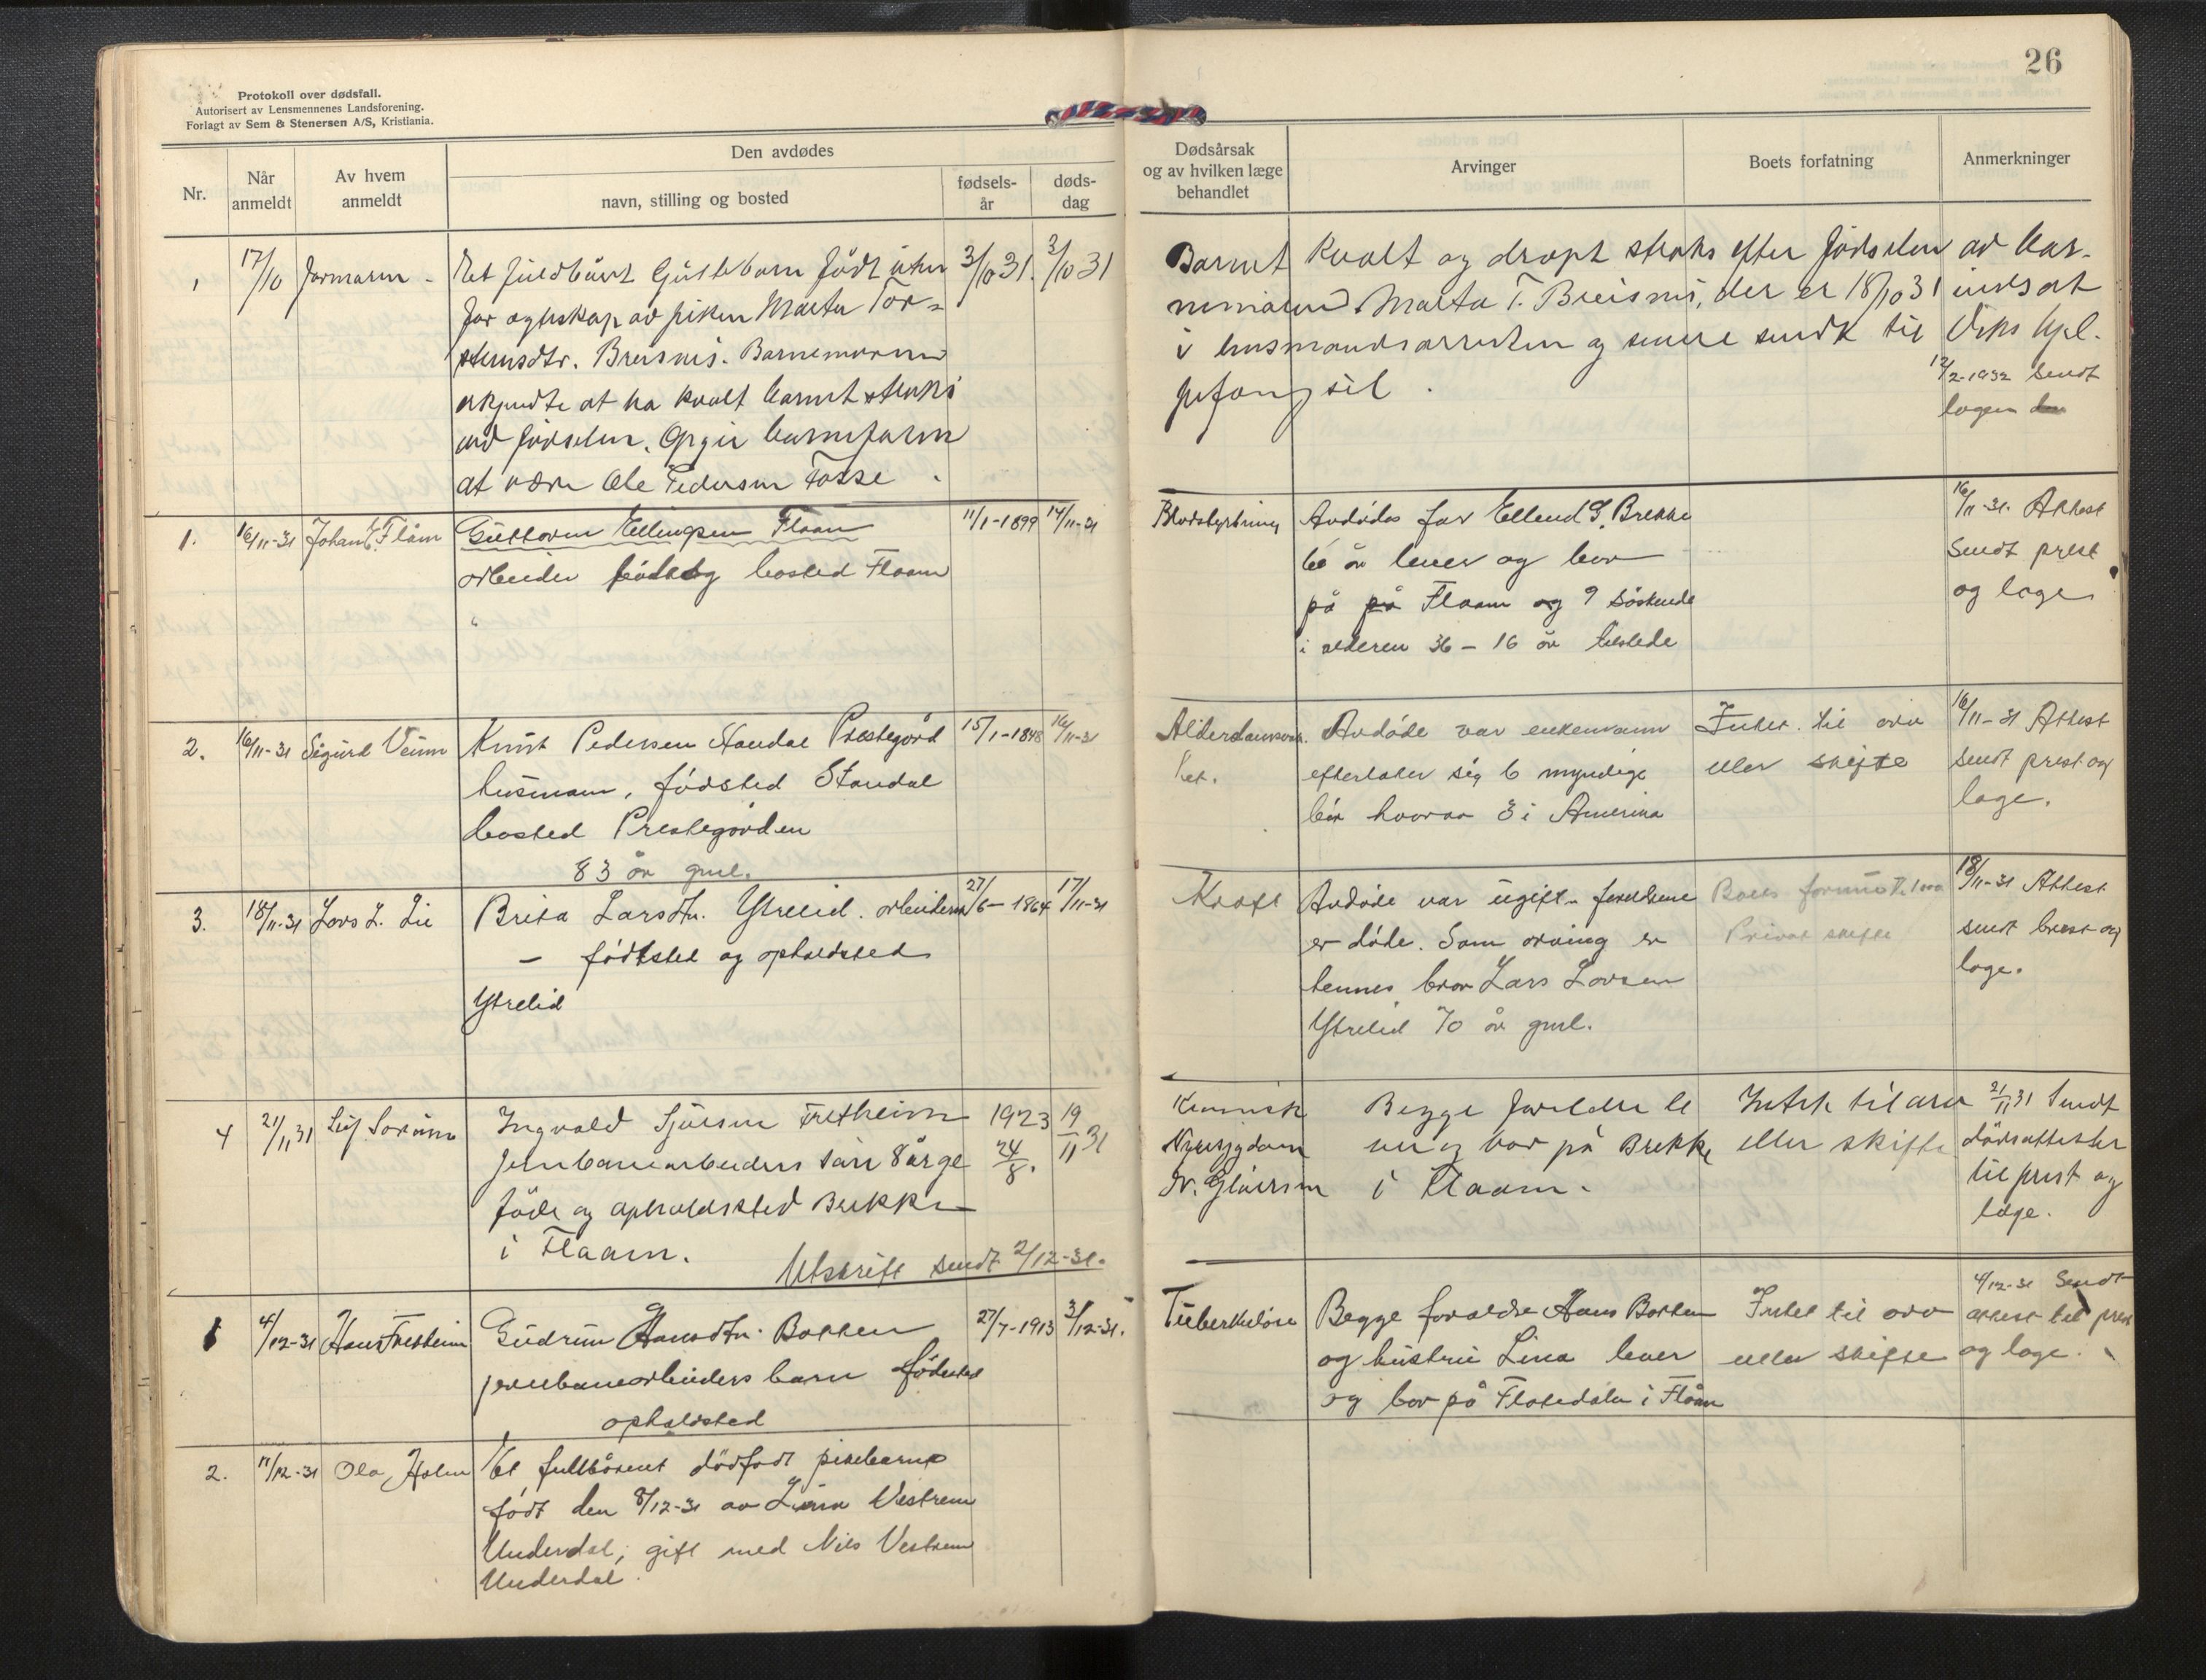 26
Protokoll over dødsfall.
Autorisert av Lensmennenes Landsforening.
Forlagt av Sem & Stenersen A/S, Kristiania.
Nr.
Når anmeldt
Av hvem anmeldt
Den avdødes
navn, stilling og bosted
fødsels-år
døds-dag
Dødsårsak og av hvilken læge behandlet
Arvinger
Boets forfatning
Anmerkninger
1 17/10 Jormarm - Et fuldbårt Guttebarn født uten 3/10 31. 3/10 31
for egteskap av piken Marta Tor-
steinsdtr. Breisnes. Barnemoren
erkjendte at ha kvalt barnet straks
ved fødselen. Opgir barnefaren
at være Ole Pedersen Fosse.
Barnet kvalt og dræpt straks efter fødselen av bar-
nemoren Marta T. Breisnes, der er 18/10 31 insat
i lensmandsarresten og senere sendt til Viks hjel-
pefængsel.
12/2-1932 sendt
lagen
1. 16/11-31 Johan E. Flåm Guttorm Ellingsen Flaam 11/1-1899 14/11-31
arbeider bosted Flaam
Blodstyrtning Avdødes far Ellend G. Brekke
60 år lever og bor
på på Flaam og 9 søskende
i alderen 36 - 16 år tilstede
16/11-31. Attest
sendt prest
og læge
2. 16/11-31 Sigurd Veum Knut Pedersen Standal Prestegård 15/1-1848 16/11-31
husmann, fødsted Standal
bosted Prestegården
83 år gml.
Alderdomsvak-
het. Avdøde var enkemann
efterlater sig 6 myndige
bør hvorav 3 i Amerika
Intet til arv
eller skifte
16/11-31 Attest
sendt prest og
læge.
3. 18/11-31 Lars L. Lie Brita Larsdtr. Ytrelid. arbeiderske 27/6-1864 17/11-31
- fødtsted og opholdsted
Ytrelid
Kræft Avdøde var ugift - foreldrene
er døde. Som arving er
hennes bror Lars Larsen
Ytrelid 70 år gml.
Boets formue
Privat skifte
18/11-31 Attest
sendt prest og
læge.
4 21/11 31 Leif Ingvald Sjursen Fretheim 1923 24/8. 19/11 31
jernbanearbeiders søn 8 årge
føde og opholdssted Brekke
i Flaam.
Utskrift sendt 2/12-31.
Kronisk
Nyresygdom
Begge foreldre le
ver og bor på Brekke
i Flaam.
Intet til arv
eller skifte
21/11 31 Sendt
dødsattester
til prest og
læge.
1 4/12-31 Hans Fretheim Gudrun Hansdtr. Bakken 27/7-1913 3/12-31.
jernbanearbeiders barn fødested
opholdsted
Tuberkulose Begge foreldre Hans Bakken
og hustru Lina lever
og bor på Flatedalen i Flåm
Intet til arv
eller skifte
4/12-31 Sendt
attest til prest
og læge.
2. 11/12-31 Ola Holm Et fullbårent dødfødt pikebarn
født den 8/12-31 av Lina Vestrem
Underdal, gift med Nils Vestrem
Underdal.